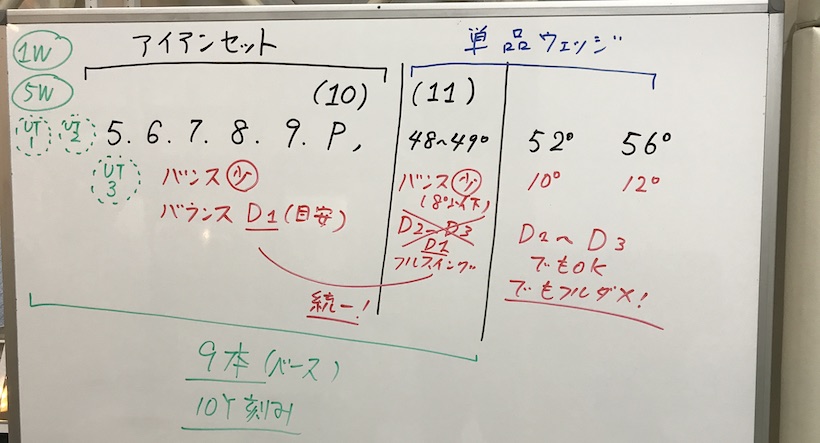 1W
アイアンセット
単品ウェッジ
5W
(10)
(11)
UT1
UT2
5. 6. 7. 8. 9. P,
48~49°
52°
56°
UT3
バンス少
バンス少
10°
12°
(8°以下)
バランス D1(目安)
D2~D3
D1
フルスイング
D2~D3
でもOK
でもフルダメ!
統一!
9本(ベース)
10Y刻み